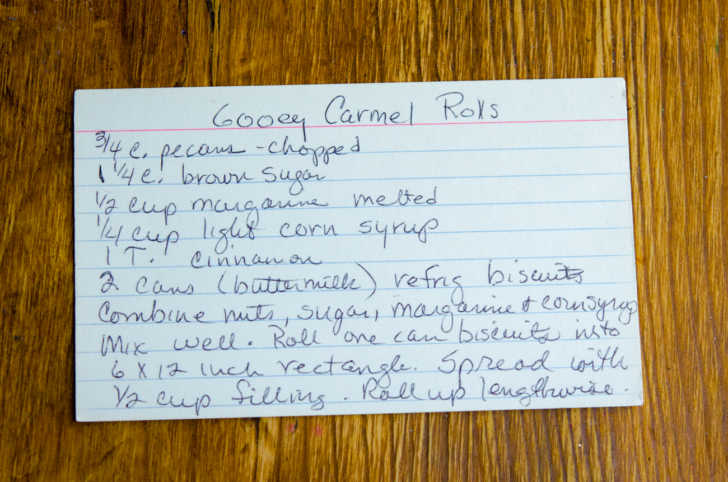 Gooey Carmel Rolls
3/4 c. pecans - chopped
1 1/4 c. brown sugar
1/2 cup margarine melted
1/4 cup light corn syrup
1 T. cinnamon
2 cans (buttermilk) refrig biscuits
Combine nuts, sugar, margarine & cornsyrup
Mix well. Roll one can biscuits into
6 x 12 inch rectangle. Spread with
1/2 cup filling. Roll up lengthwise.